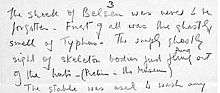 3
The shock of Belsen was never to be
forgotten. First of all was the ghostly
smell of Typhus. The simply ghastly
sight of skeleton bodies just flung out
of the huts
The stable was used to wash any